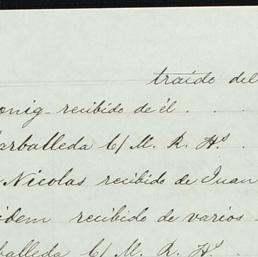 traído del
onig recibido de él . .
arballeda C/ M. R. Hs.
Nicolas recibido de Juan
idem recibido de varios
balleda C/ M. R. Hs.